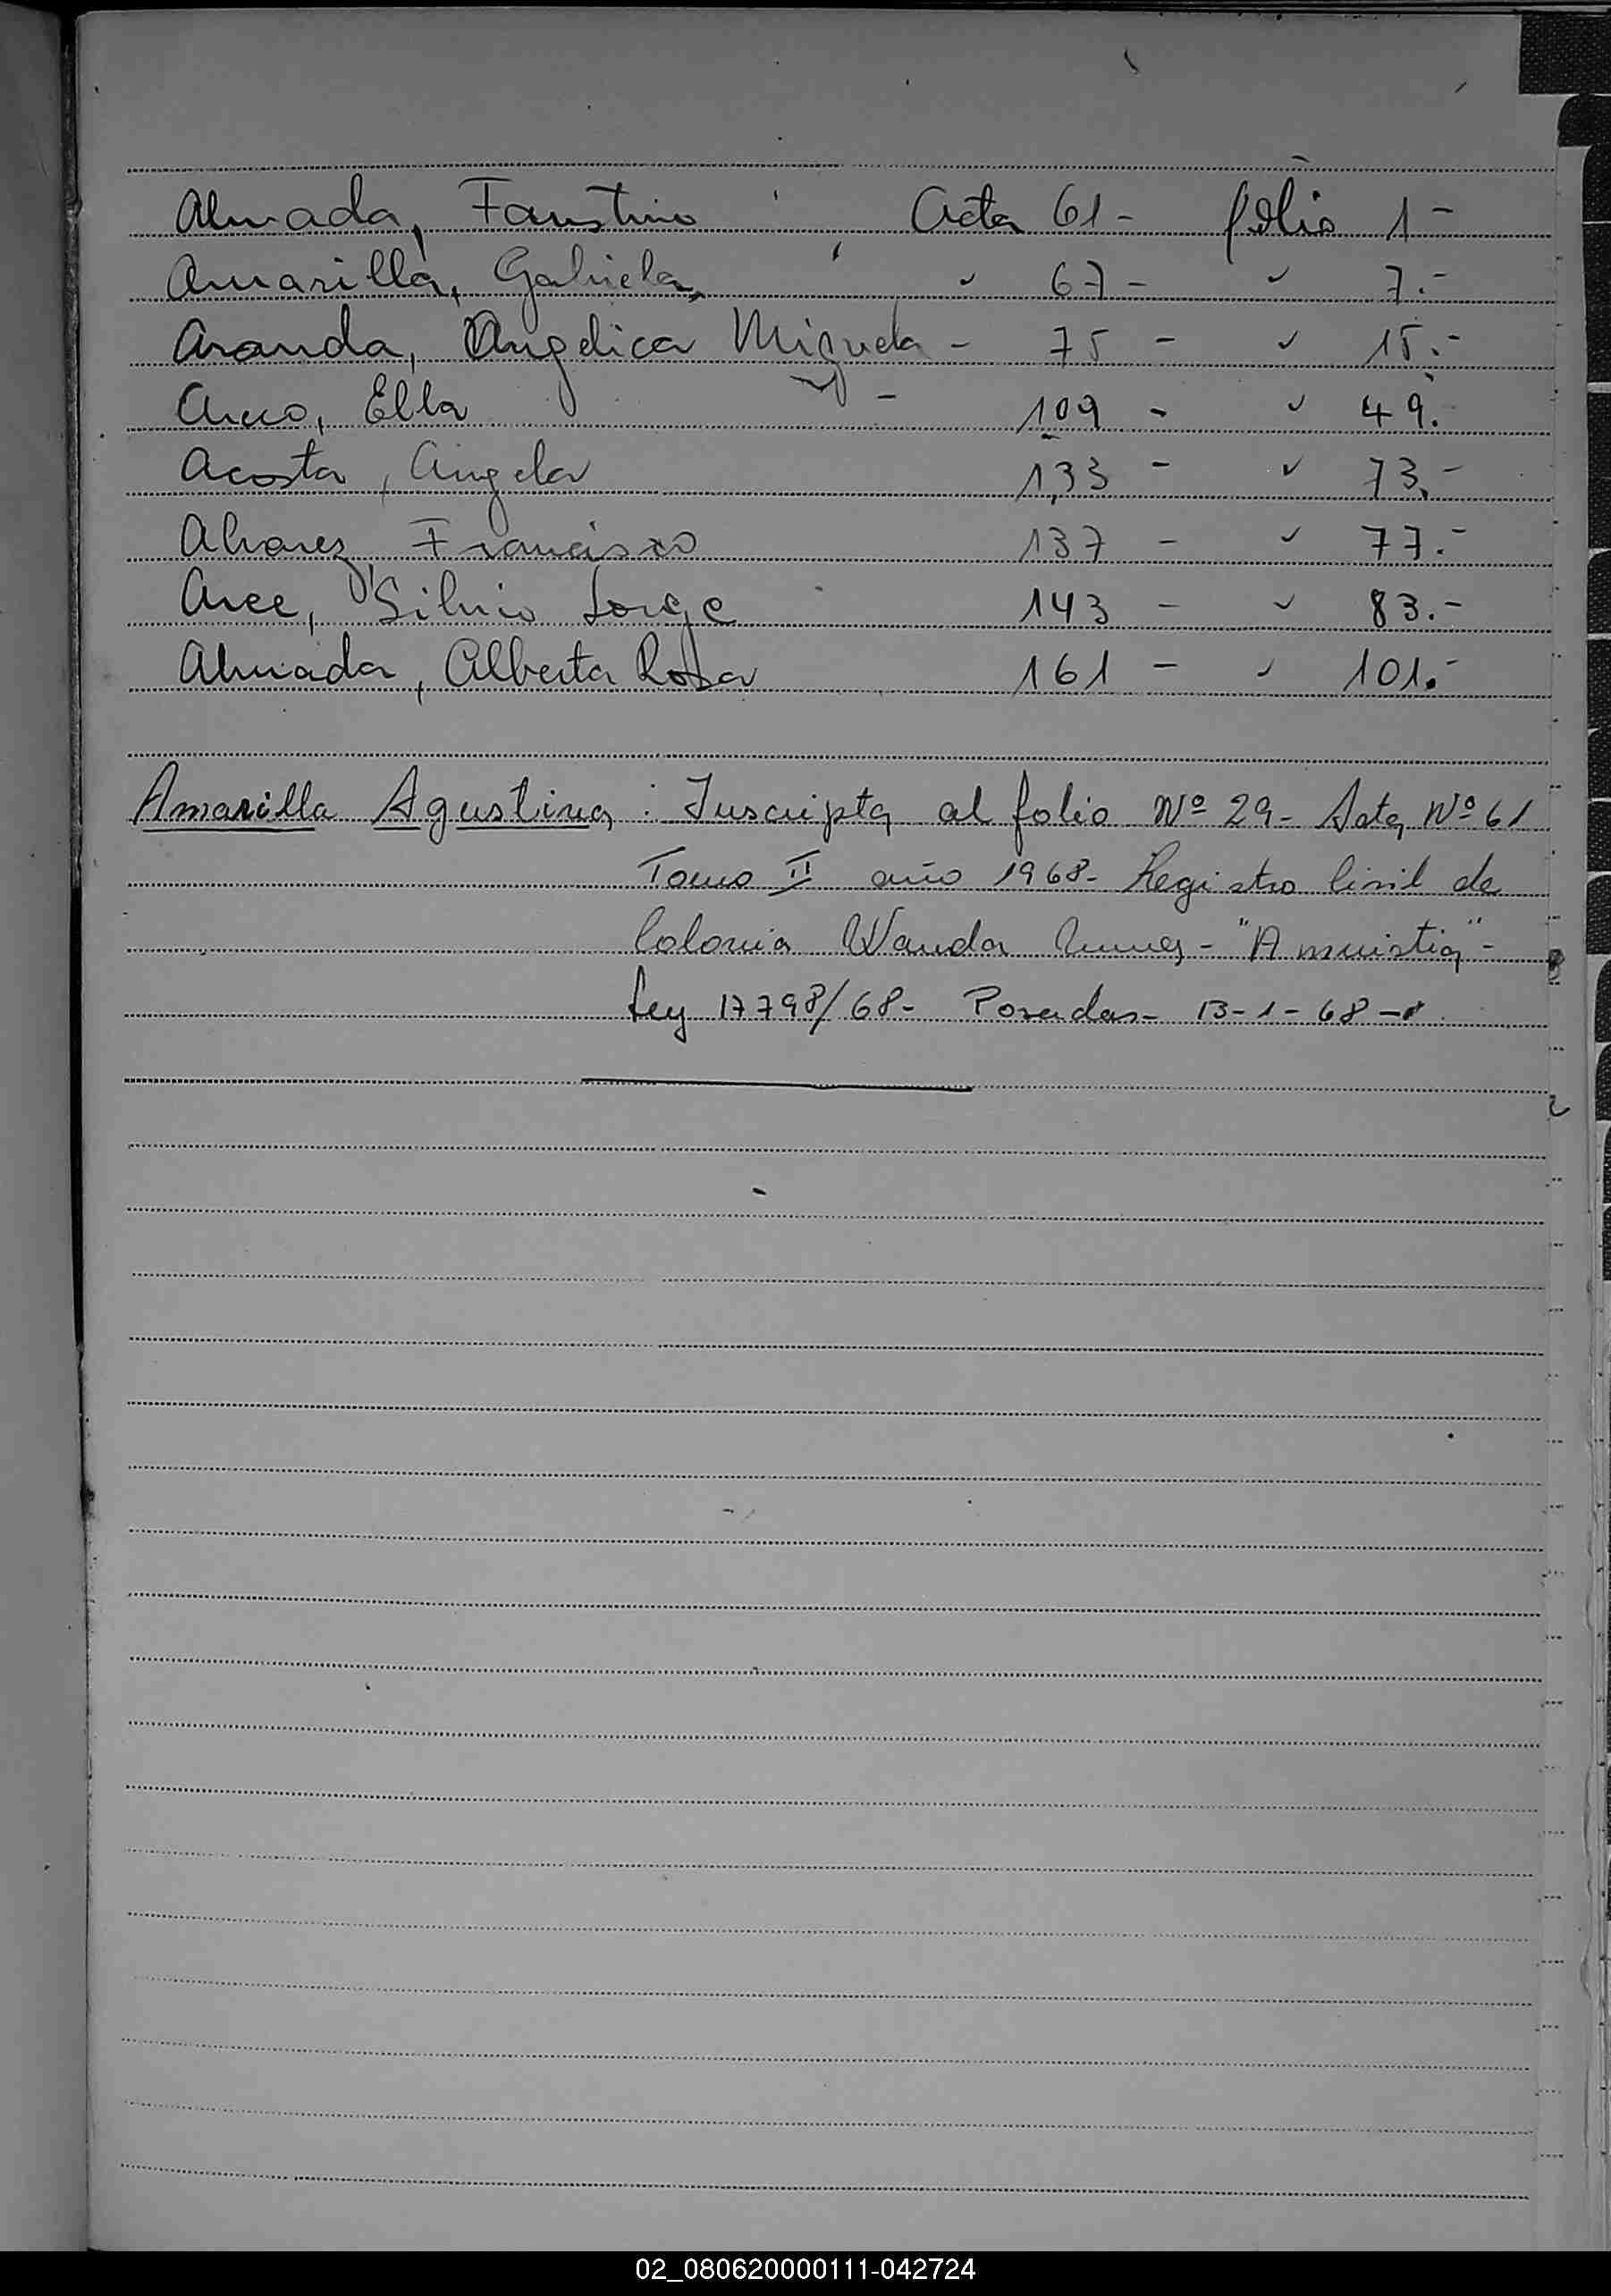 Almada, Faustino Acta 61 - folio 1 -
Amarilla, Gabriela, " 67 - " 7.-
Aranda, Angelica Miguela - 75 - " 15.-
Ella - 109 - " 49.
Acosta, Angela 133 - " 73.-
Alvarez, Francisco 137 - " 77.-
Arce, Silvio Jorge 143 - " 83.-
Almada, Alberta Rosa 161 - " 101.-
Amarilla Agustina: Inscripta al folio Nº 29- Acta Nº 61
Tomo II año 1968- Registro Civil de
Colonia Wanda - "Amnistia" -
Ley 17798/68- Posadas- 13-1-68-
02_080620000111-042724